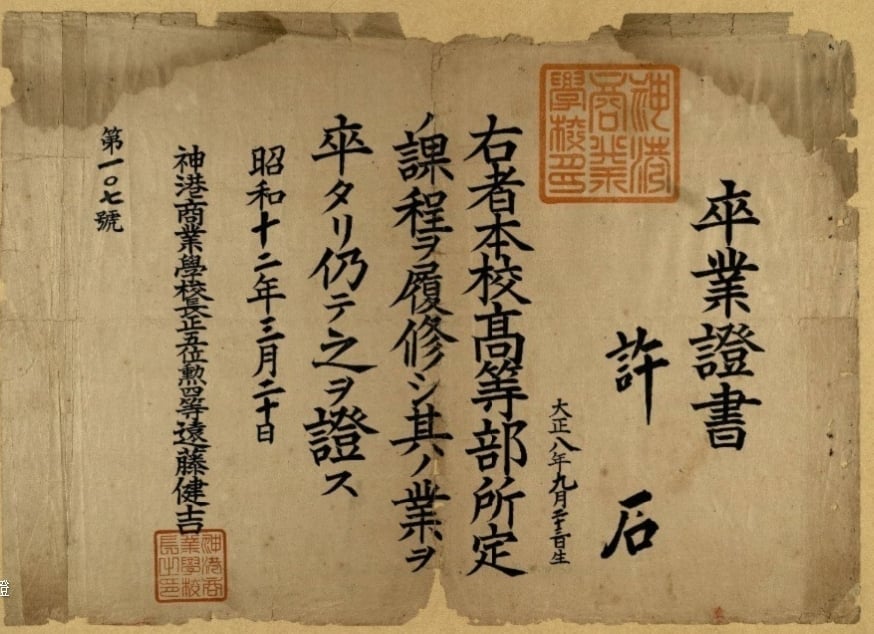 卒業證書
許石
大正八年九月二十三日生
右者本校高等部所定
ノ課程ヲ履修シ其ノ業ヲ
卒タリ仍テ之ヲ證ス
昭和十二年三月二十日
神港商業學校長正五位勲四等遠藤健吉
第一〇七號
神港
商業
學校印
神港商
業學校
長之印
證